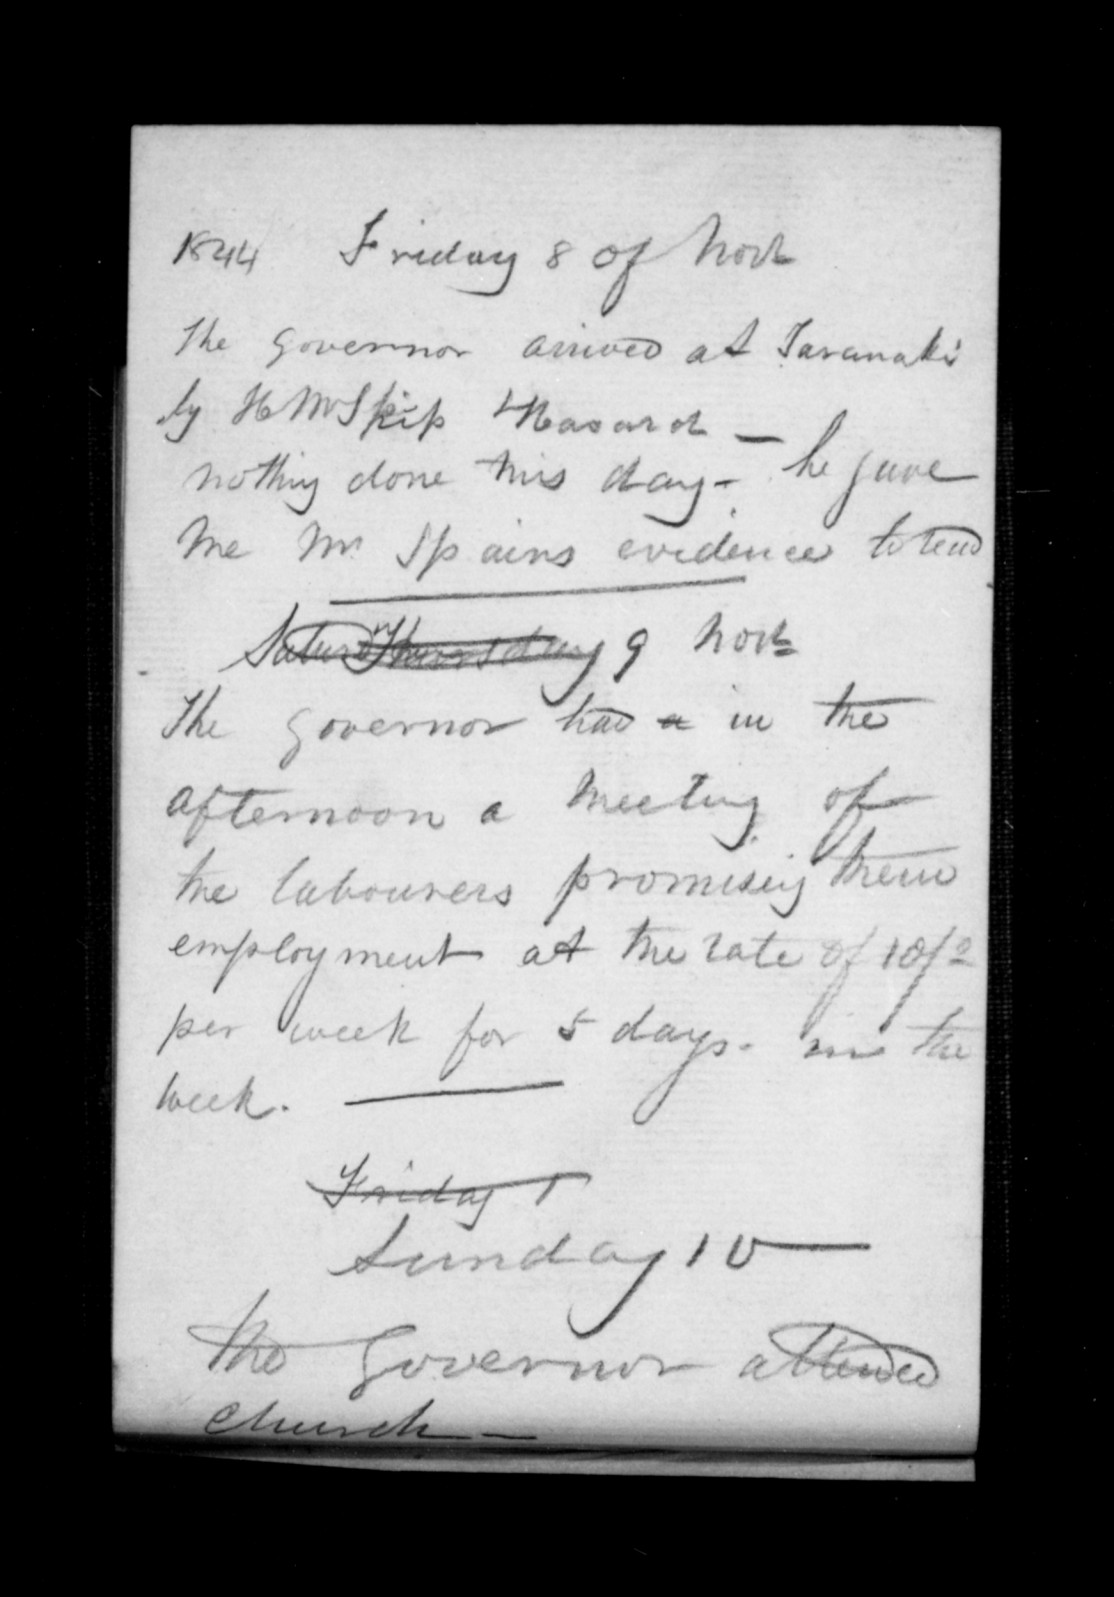 1844 Friday 8 of Novr
The Governor arrived at Taranaki
by H M Ship Hazard —
nothing done this day - he gave
me Mr Spains evidence to read
Saturday Thursday 9 Novr
The Governor had a in the
afternoon a meeting of
the labourers promising them
employment at the rate of 10/
per week for 5 days. in the
week.
Friday 1
Sunday 10
The Governor attended
church —